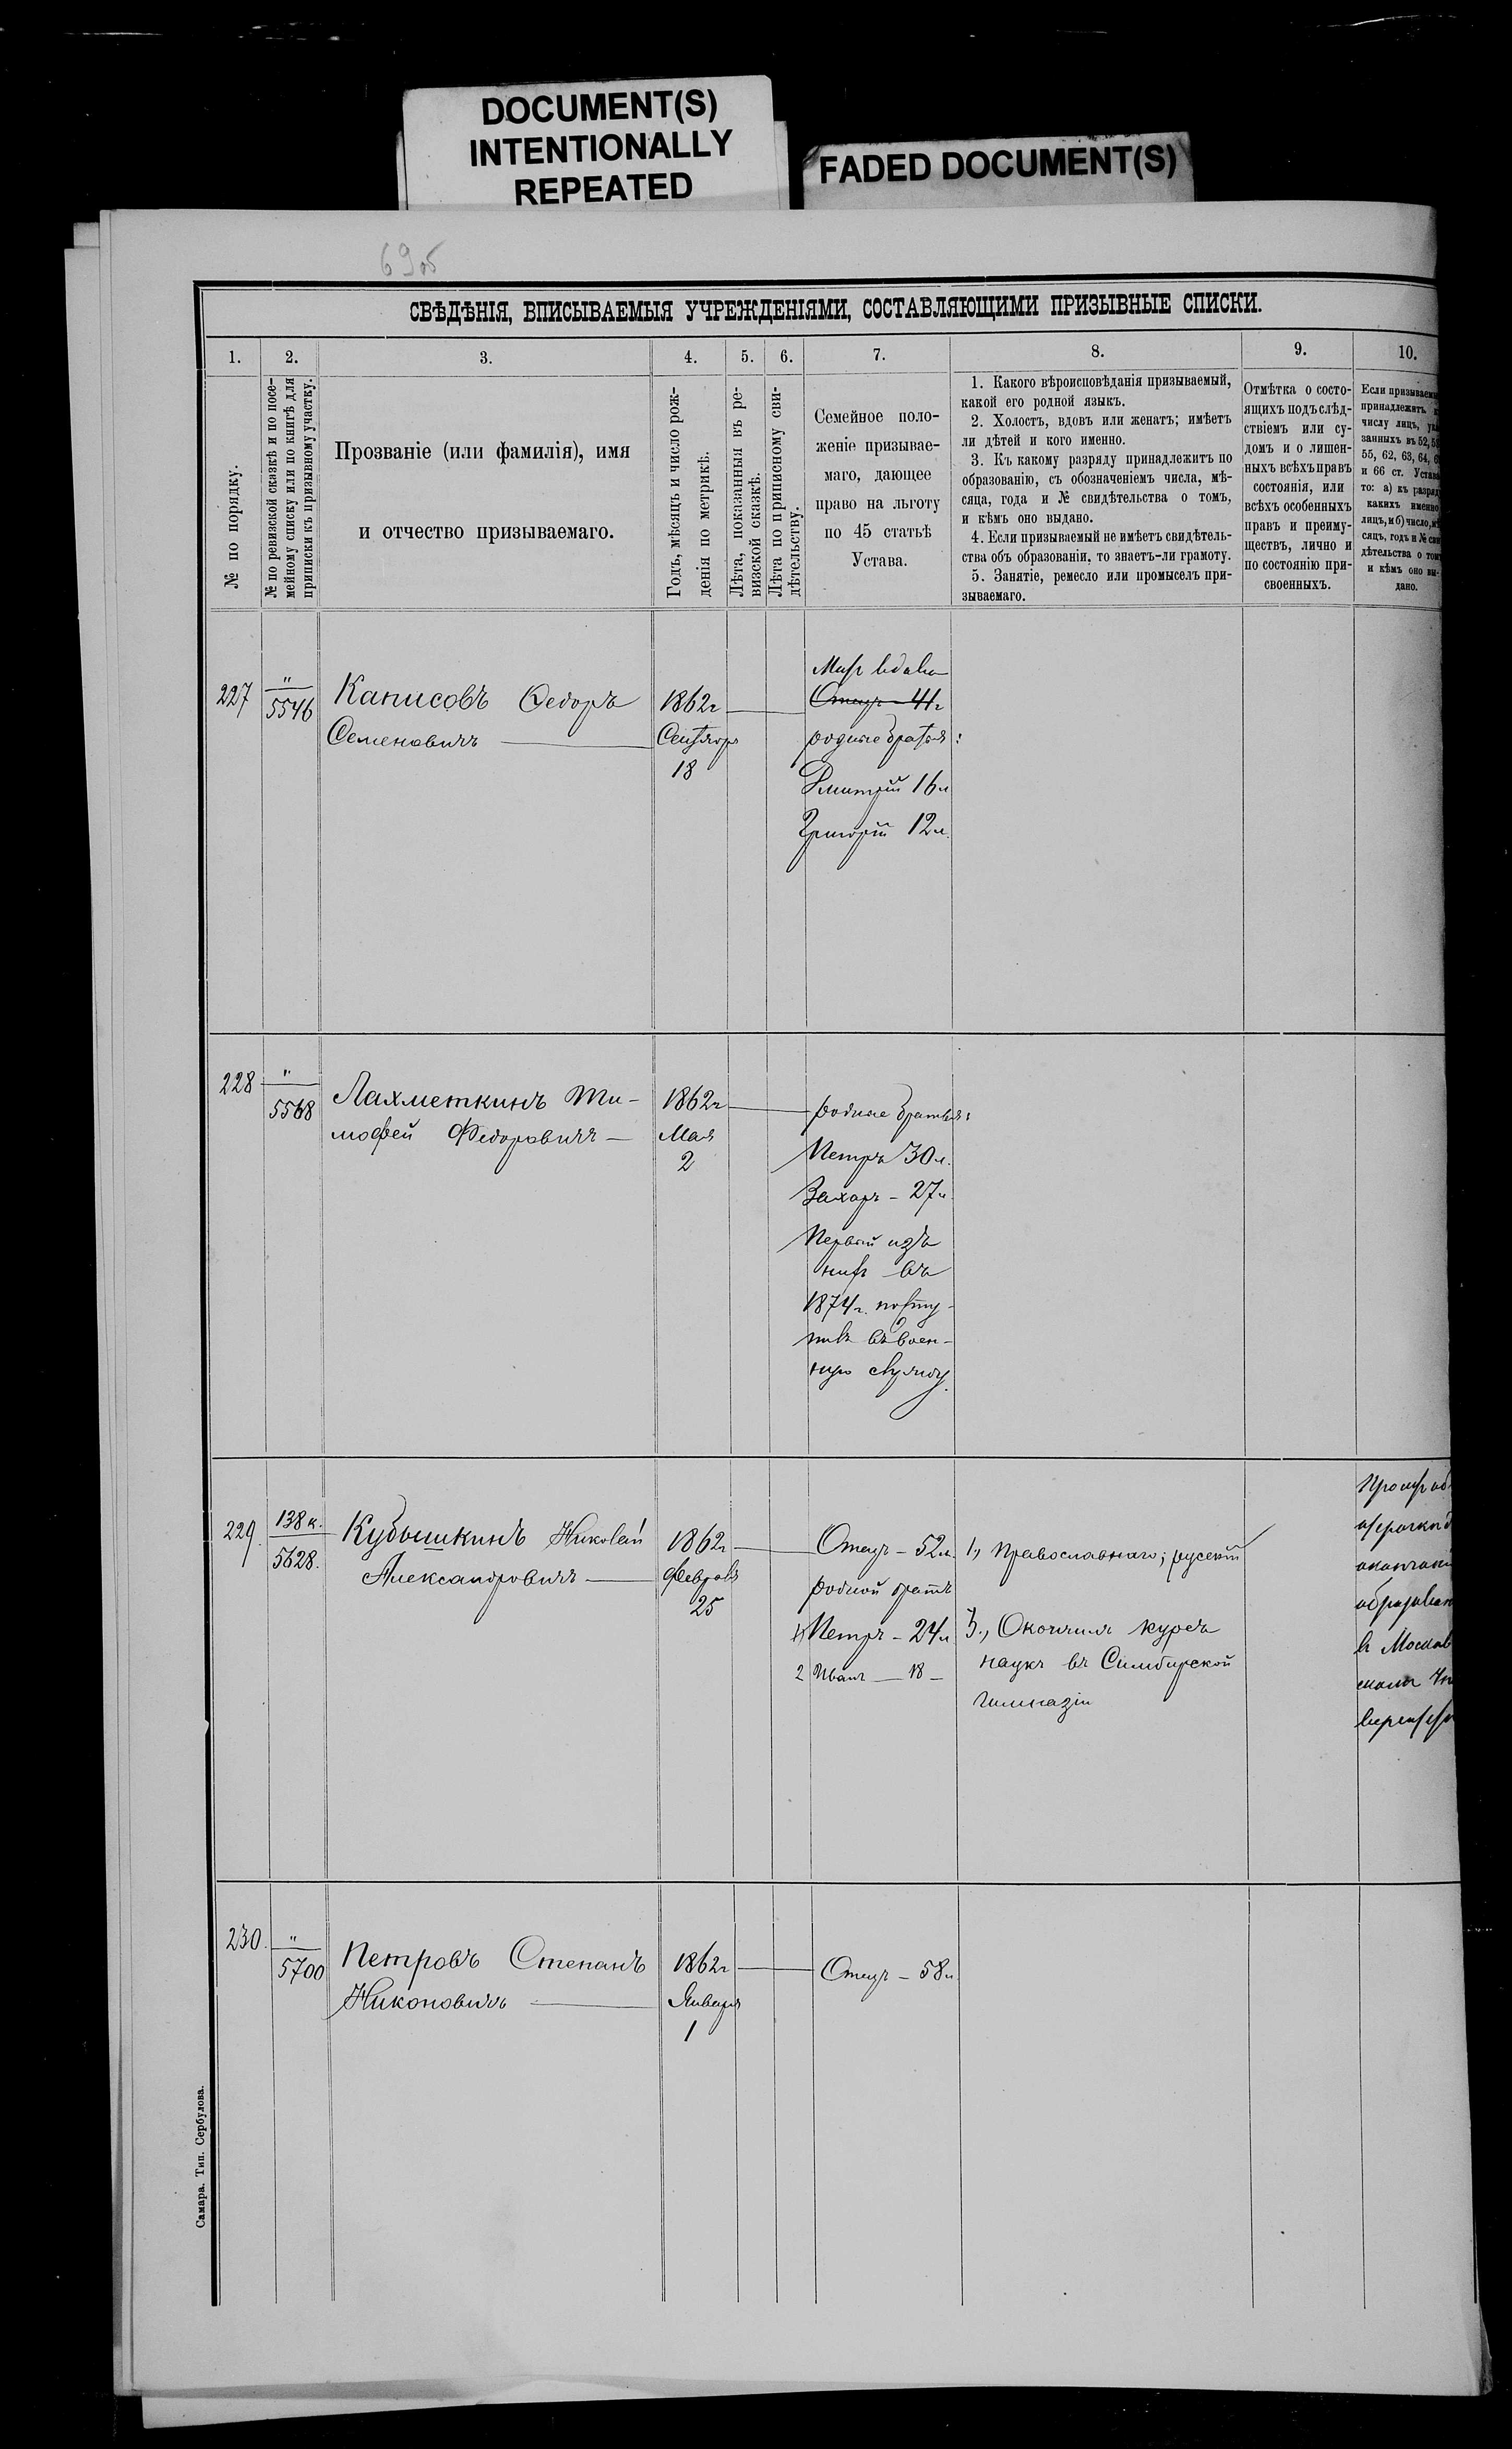 DOCUMENT(S)
INTENTIONALLY
REPEATED
FADED DOCUMENT(S)
69об
СВѢДѢНІЯ, ВПИСЫВАЕМЫЯ УЧРЕЖДЕНІЯМИ, СОСТАВЛЯЮЩИМИ ПРИЗЫВНЫЕ СПИСКИ.
1.
2.
3.
4.
5.
6.
7.
8.
9.
10.
№ по порядку.
№ по ревизской сказкѣ и по посе-
мейному списку или по книгѣ для
приписки къ призывному участку.
Прозваніе (или фамилія), имя
и отчество призываемаго.
Годъ, мѣсяцъ и число рож-
денія по метрикѣ.
Лѣта, показанныя въ ре-
визской сказкѣ.
Лѣта по приписному сви-
дѣтельству.
Семейное поло-
женіе призывае-
маго, дающее
право на льготу
по 45 статьѣ
Устава.
1. Какого вѣроисповѣданія призываемый,
какой его родной языкъ.
2. Холостъ, вдовъ или женатъ; имѣетъ
ли дѣтей и кого именно.
3. Къ какому разряду принадлежитъ по
образованію, съ обозначеніемъ числа, мѣ-
сяца, года и № свидѣтельства о томъ,
и кѣмъ оно выдано.
4. Если призываемый не имѣетъ свидѣтель-
ства объ образованіи, то знаетъ-ли грамоту.
5. Занятіе, ремесло или промыселъ при-
зываемаго.
Отмѣтка о состо-
ящихъ подъ слѣд-
ствіемъ или су-
домъ и о лишен-
ныхъ всѣхъ правъ
состоянія, или
всѣхъ особенныхъ
правъ и преиму-
ществъ, лично и
по состоянію при-
своенныхъ.
Если призываем
принадлежитъ
числу лицъ, ука
занныхъ въ 52,
55, 62, 63, 64,
и 66 ст. Устава
то: а) къ разряду
какихъ именно
лицъ, и б) число, мѣ
сяцъ, годъ и № сви
дѣтельства о томъ
и кѣмъ оно вы-
дано.
227
"
5546
Канисовъ Ѳедоръ
Семеновичъ
1862г
Сентября
18
Мать вдова
Отецъ - 41г
родные братья:
Дмитрій 16л
Григорій 12л.
228
"
5568
Лахметкинъ Ти-
мофей Федоровичъ
1862г
Мая
2
родные братья:
Петръ 30л.
Захаръ - 27л
Первый изъ
нихъ въ
1874г. посту-
пилъ въ воен-
ную службу.
229
138 к.
5628.
Кубышкинъ Николай
Александровичъ
1862г
Февраля
25
Отецъ - 52л.
родной братъ
1) Петръ - 24л
2 Иванъ - 18 -
1, Православнаго; русскій
3., Окончилъ курсъ
наукъ въ Симбирской
гимназіи
Проситъ об
отсрочкѣ д
окончані
образован
въ Москов
скомъ Уни
верситет
230.
"
5700
Петровъ Степанъ
Никоновичъ
1862г
Января
1
Отецъ - 58л
Самара. Тип. Сербулова.